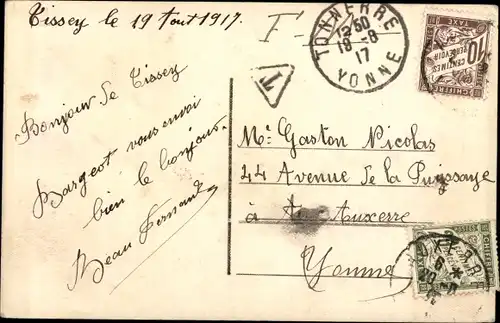 Tissey le 19 Aout 1917.
Bonjour de Tissey
Bargeot vous envoi
bien le bonjour.
Beau Fernand
F
T
TONNERRE
12 50
19-8
17
YONNE
Mr Gaston Nicolas
44 Avenue de la Puissaye
à Auxerre
Yonne
10
CENTIMES
A PERCEVOIR
CHIFFRE
TAXE